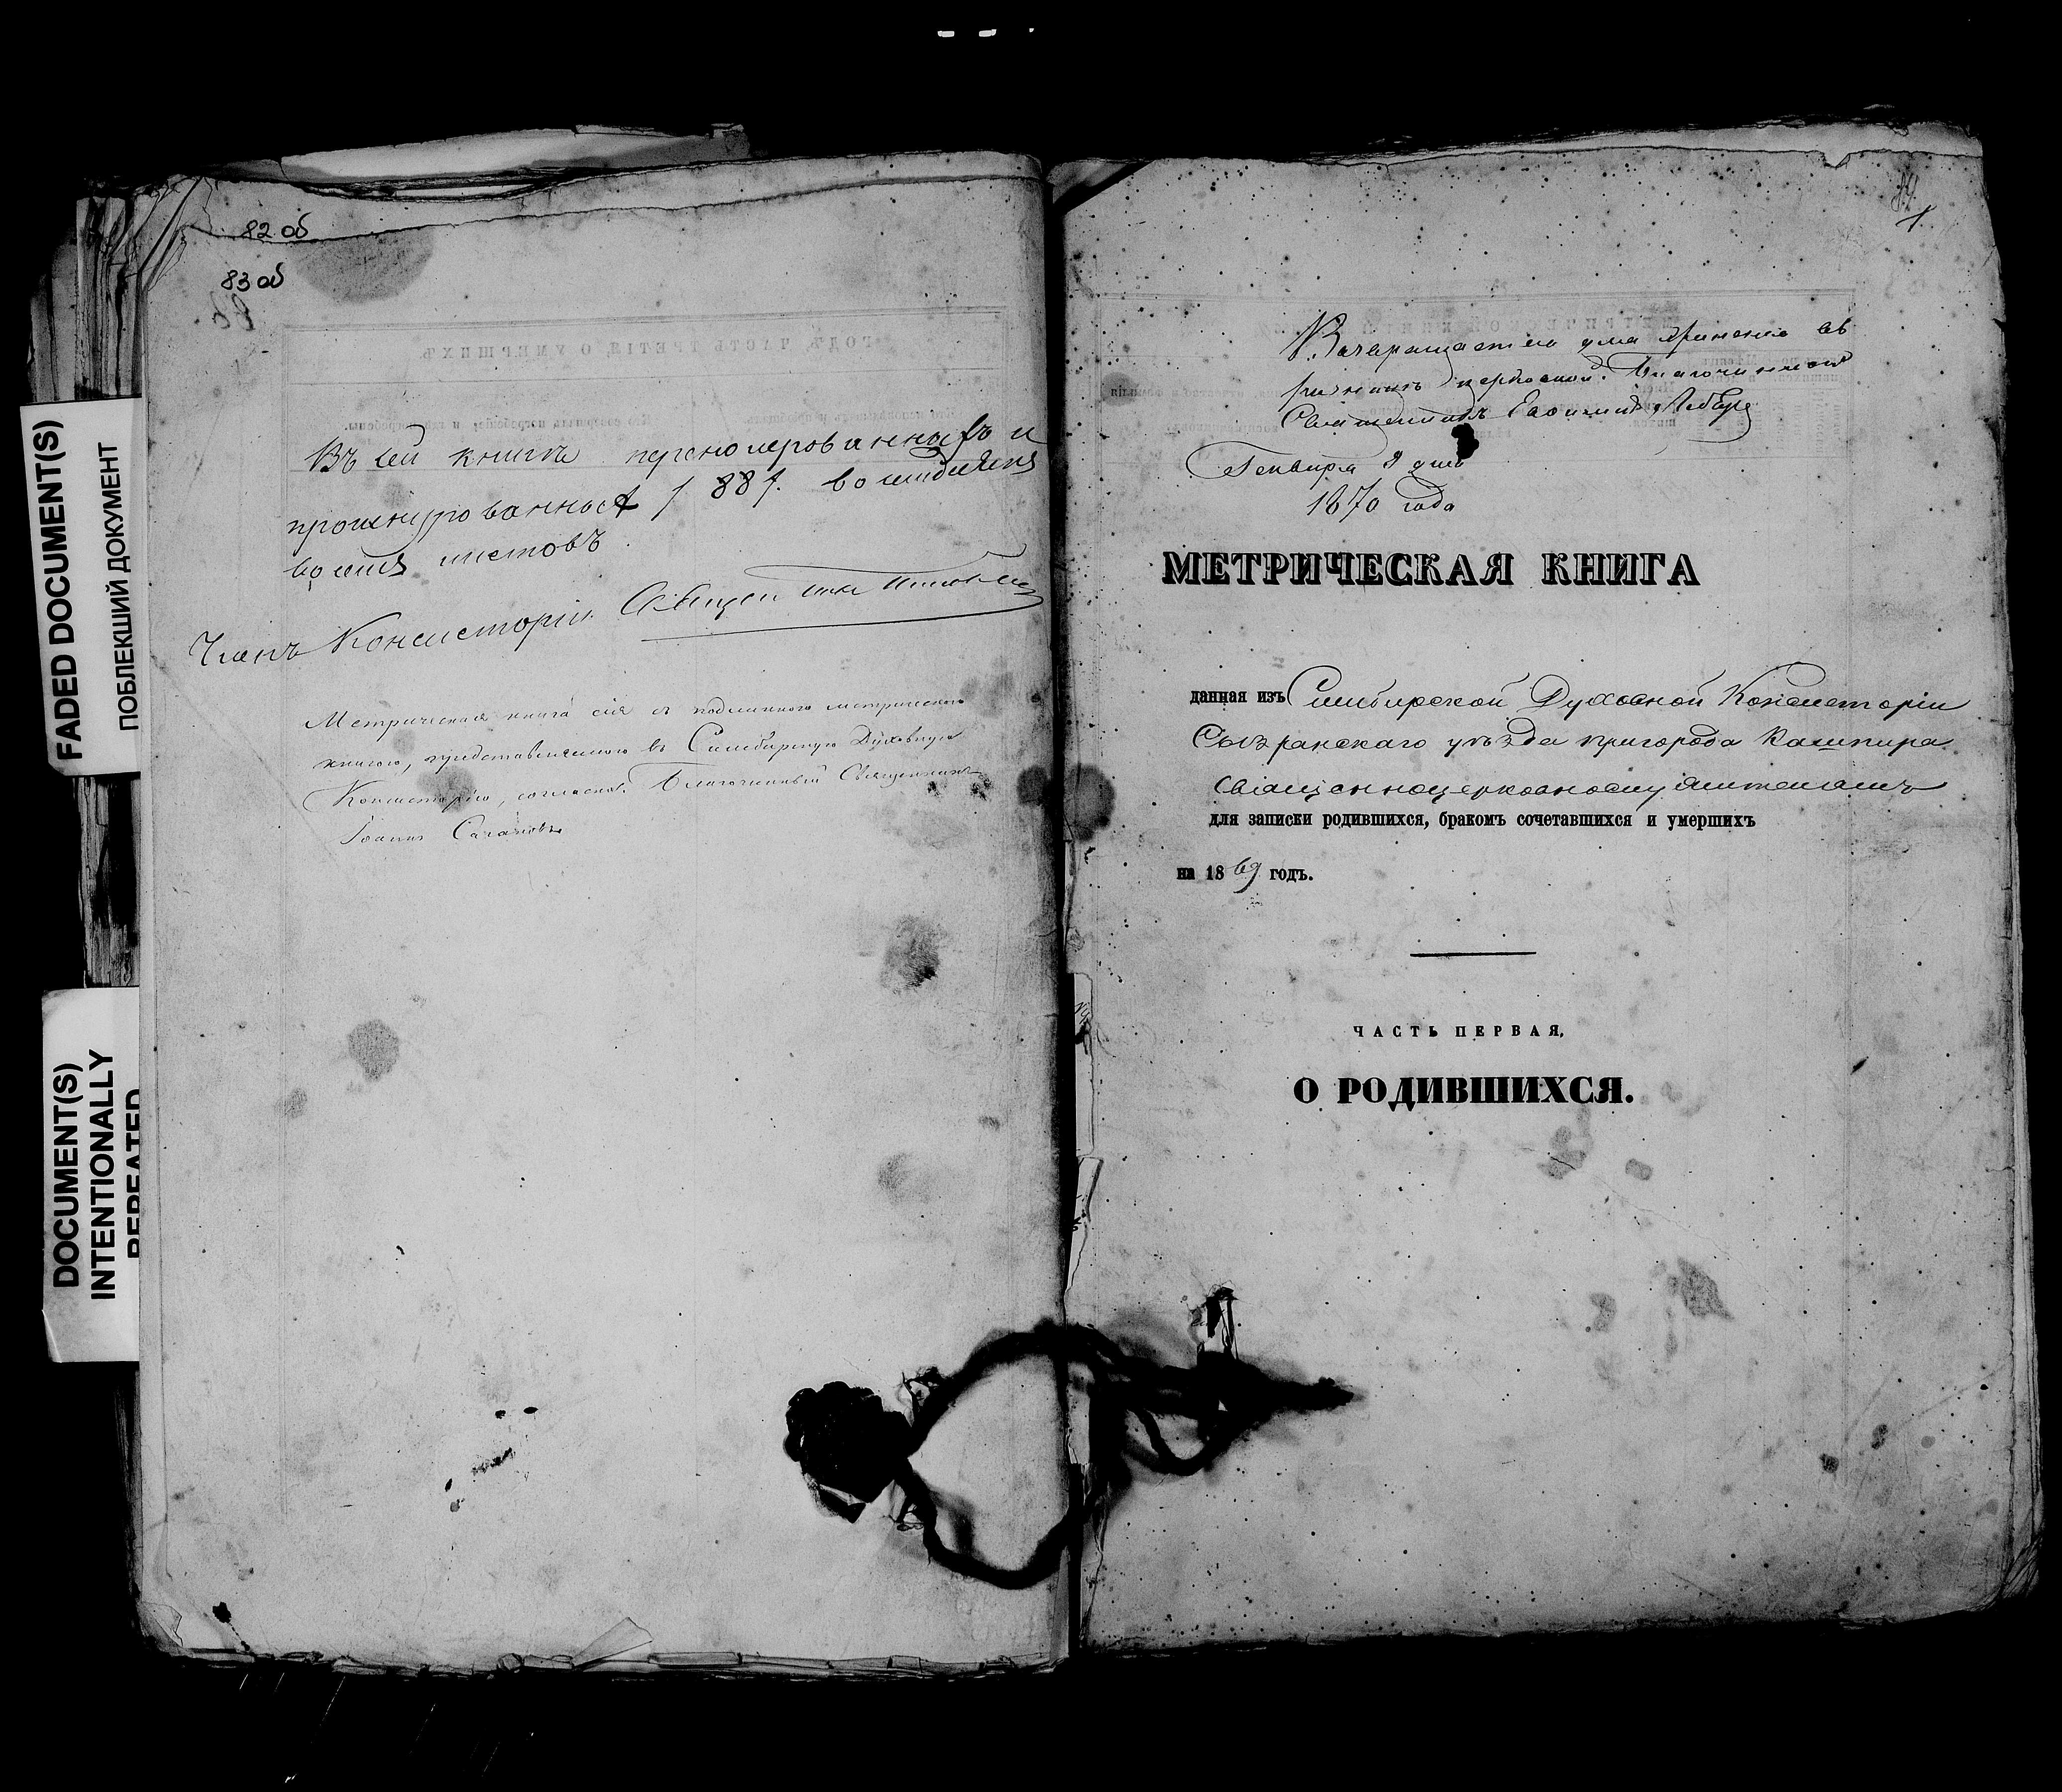 FADED DOCUMENT(S)
ПОБЛЕКШИЙ ДОКУМЕНТ
DOCUMENT(S)
INTENTIONALLY
REPEATED
82 об
83 об
Въ сей книгѣ перенумерованныхъ и
прошнурованныхъ / 88 /. восемьдесятъ
восемь листовъ
Членъ Консисторіи
Метрическая книга сія съ подлинною метрическою
книгою, представленною въ Симбирскую Духовную
Консисторію, согласна. Благочинный Священникъ
Іоаннъ
1
Возвращается для храненія въ
церковной. Благочинный
Священникъ
Генваря 9 дня
1870 года
МЕТРИЧЕСКАЯ КНИГА
данная изъ Симбирской Духовной Консисторіи
Сызранскаго уѣзда пригорода Кашпира
священноцерковнослужителямъ
для записки родившихся, бракомъ сочетавшихся и умершихъ
на 1869 годъ.
ЧАСТЬ ПЕРВАЯ,
О РОДИВШИХСЯ.